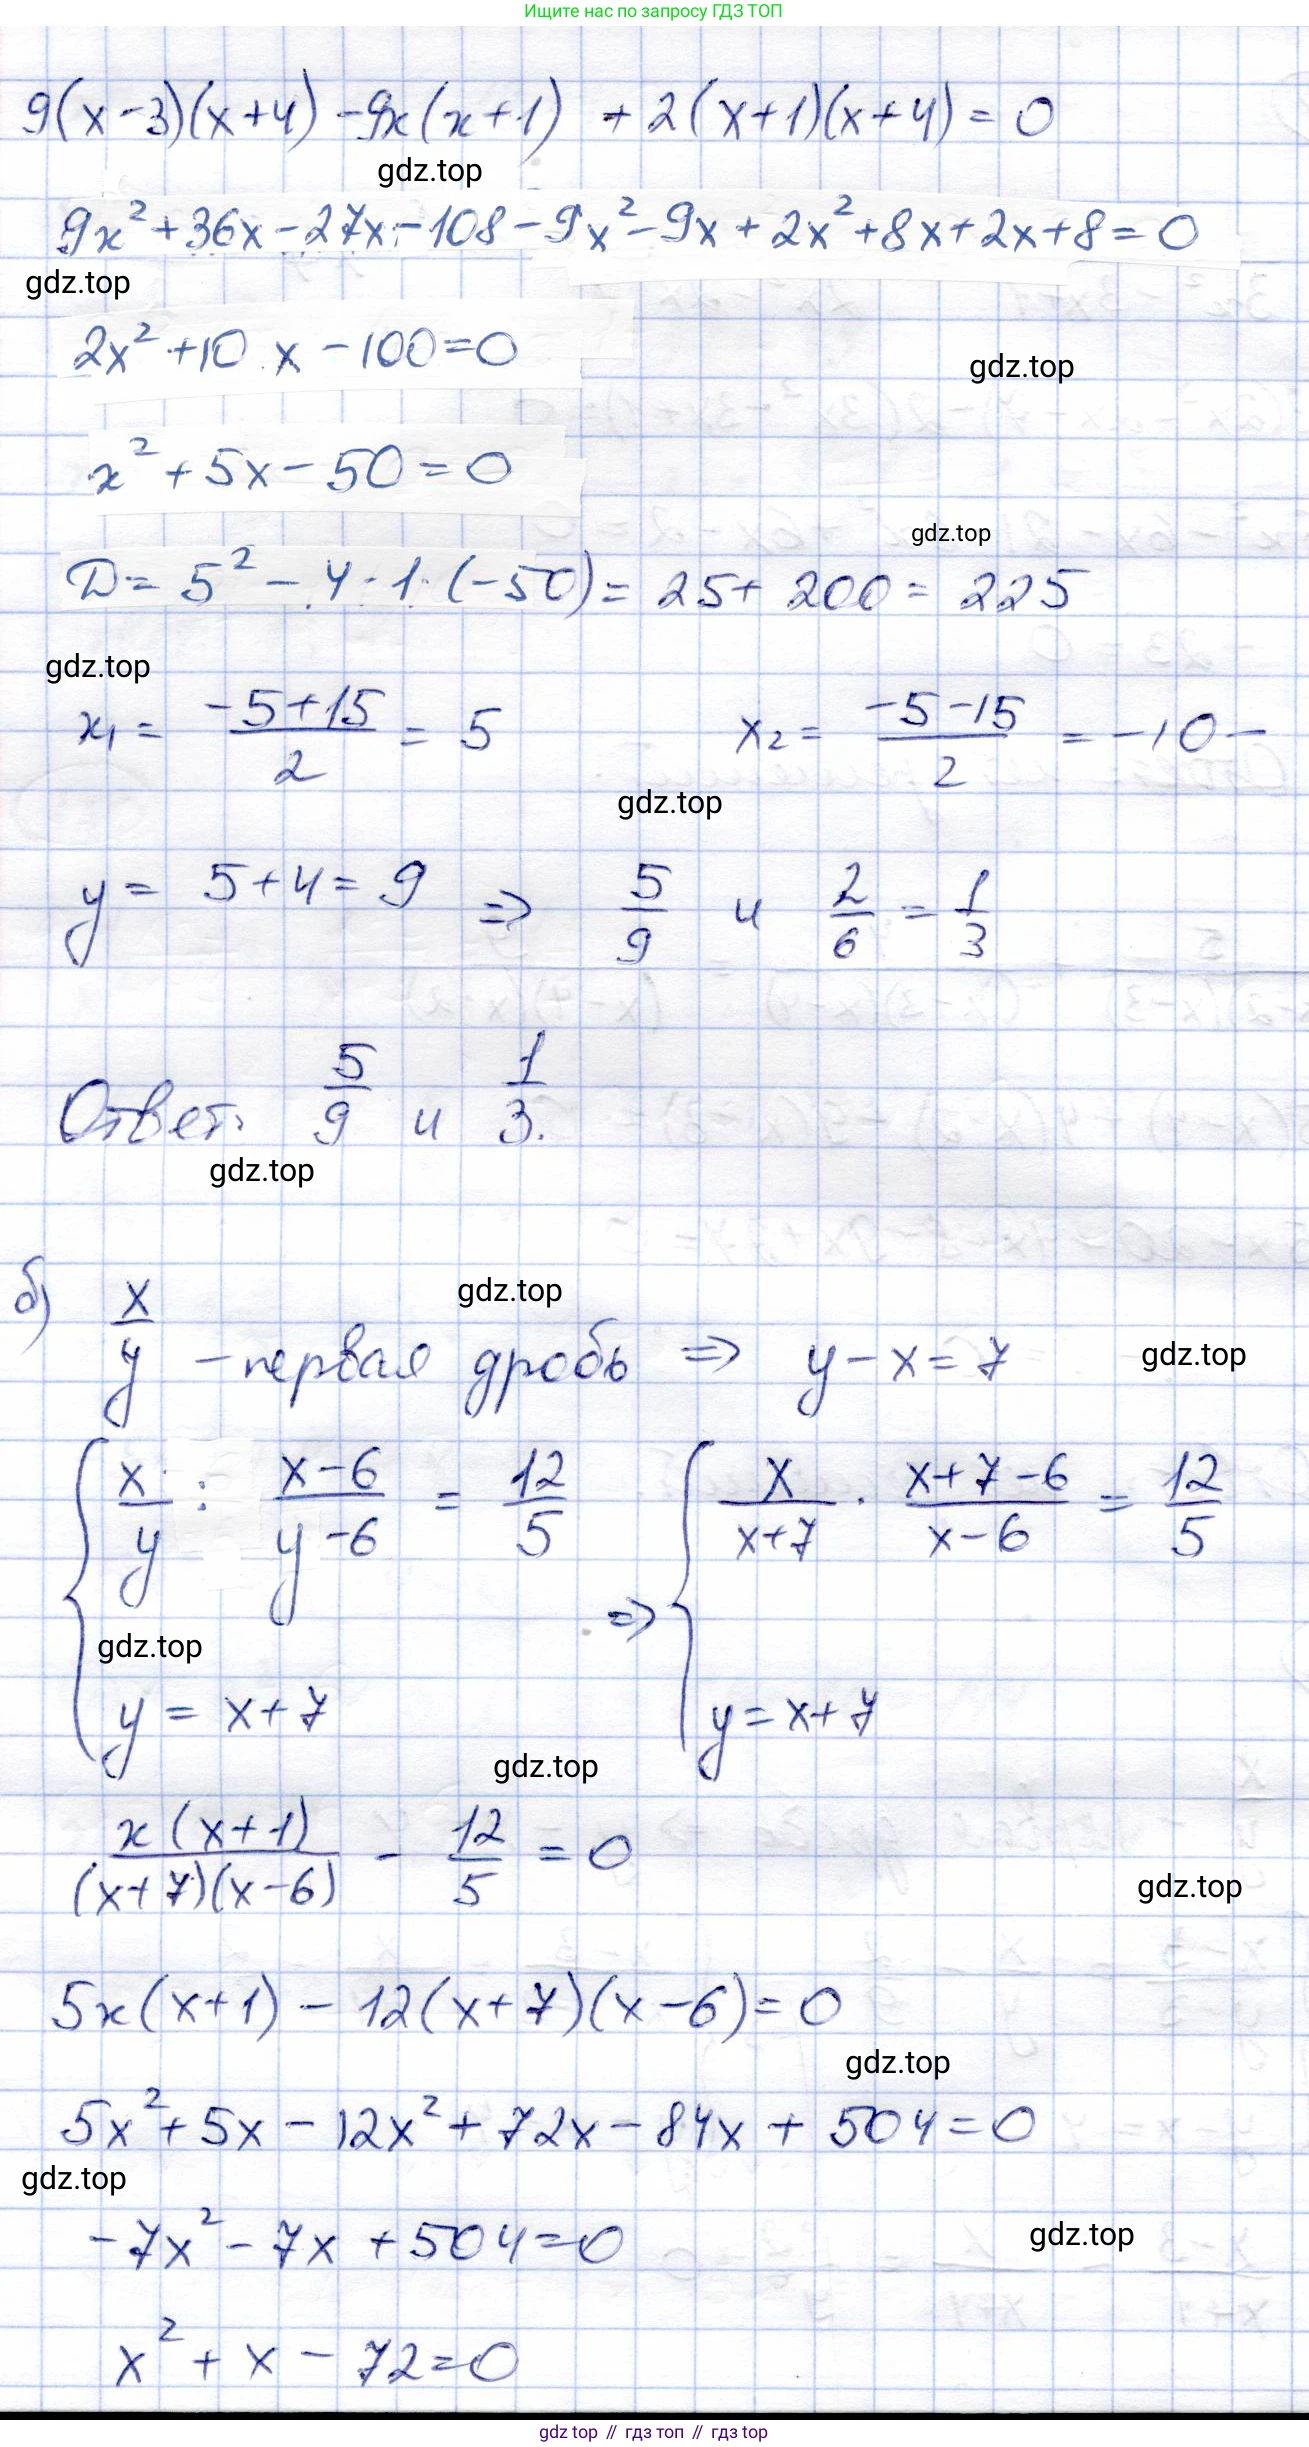 Ищите нас по запросу ГДЗ ТОП
9(x-3)(x+4) -9x(x+1) + 2(x+1)(x+4) = 0
gdz.top
9x² + 36x - 27x - 108 - 9x² - 9x + 2x² + 8x + 2x + 8 = 0
gdz.top
2x² + 10x - 100 = 0
gdz.top
x² + 5x - 50 = 0
gdz.top
D = 5² - 4·1·(-50) = 25 + 200 = 225
gdz.top
x₁ = (-5+15)/2 = 5 x₂ = (-5-15)/2 = -10 -
gdz.top
y = 5+4 = 9 => 5/9 и 2/6 = 1/3
Ответ: 5/9 и 1/3.
gdz.top
gdz.top
б) x/y - первая дробь => y - x = 7
gdz.top
{ x/y : (x-6)/(y-6) = 12/5 => { x/(x+7) · (x+7-6)/(x-6) = 12/5
gdz.top
y = x+7 y = x+7
gdz.top
x(x+1)/((x+7)(x-6)) - 12/5 = 0
gdz.top
5x(x+1) - 12(x+7)(x-6) = 0
gdz.top
5x² + 5x - 12x² + 72x - 84x + 504 = 0
gdz.top
-7x² - 7x + 504 = 0
gdz.top
x² + x - 72 = 0
gdz top // гдз топ // гдз top